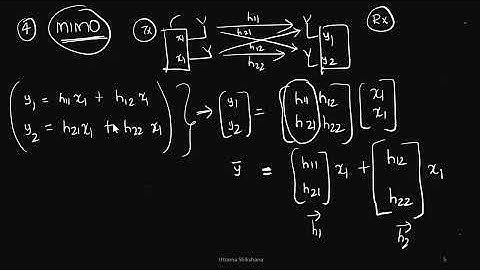 ④ MIMO Tx x₁ x₁ h₁₁ h₂₁ h₁₂ h₂₂ y₁ y₂ Rx
y₁ = h₁₁ x₁ + h₁₂ x₁
y₂ = h₂₁ x₁ + h₂₂ x₁
→ [y₁ y₂] = [h₁₁ h₁₂ h₂₁ h₂₂] [x₁ x₁]
y̅ = [h₁₁ h₂₁] x₁ + [h₁₂ h₂₂] x₁
h⃗₁ h⃗₂